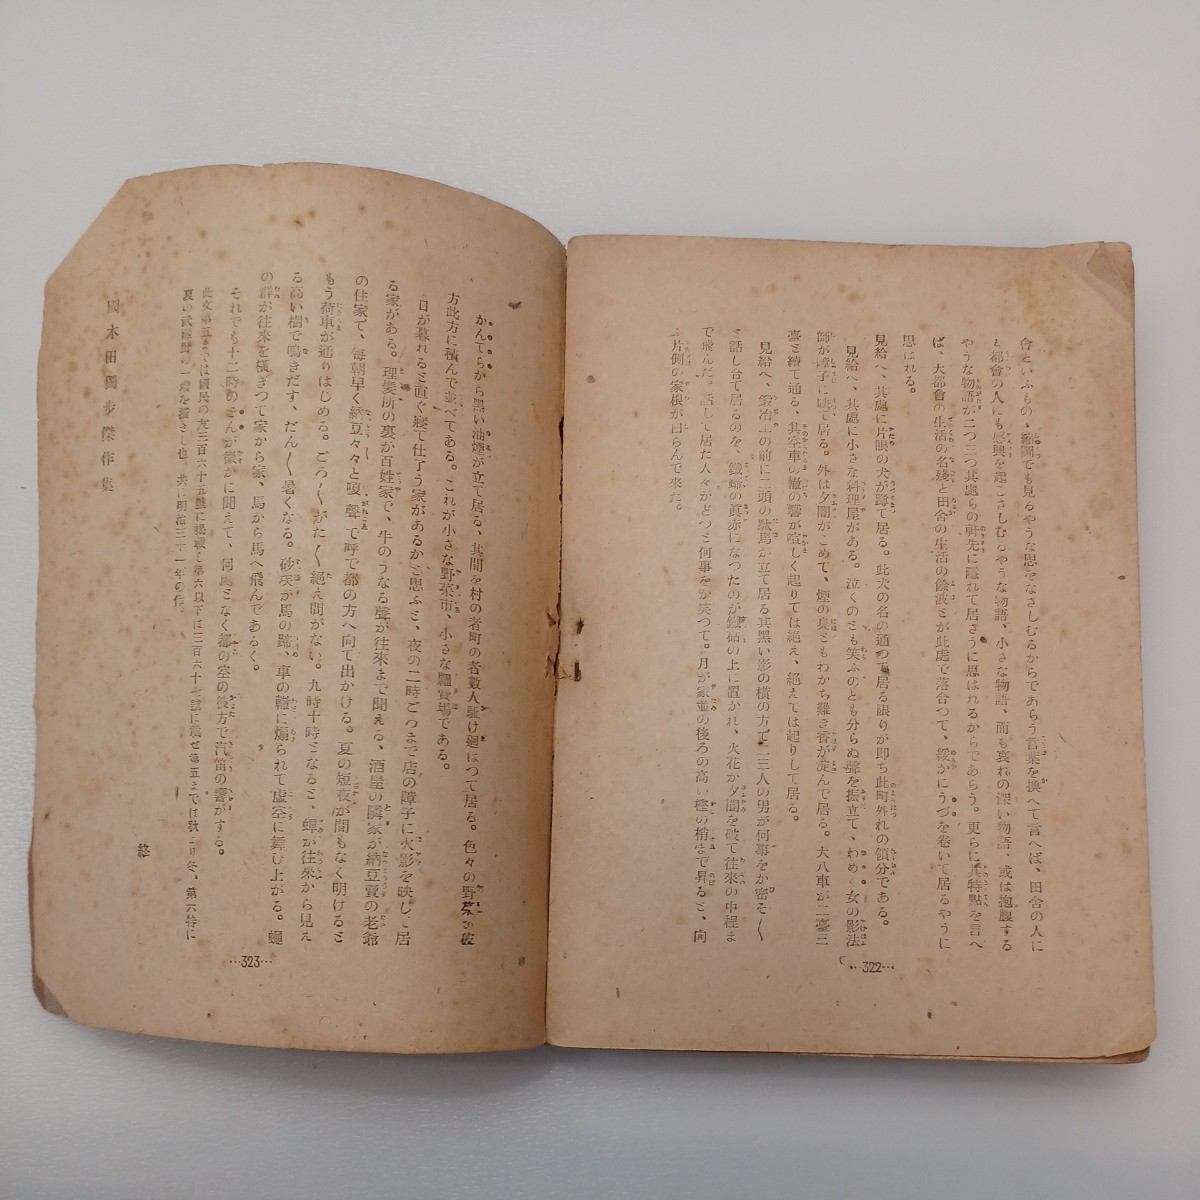 會といふもの、縮圖でも見るやうな思をなさしむるからであらう言葉を換へて言へば、田舎の人に
も都會の人にも感興を起こさしむるやうな物語、小さな物語、而も哀れの深い物語、或は抱腹する
やうな物語が二つ三つ其處らの軒先に隱れて居さうに思はれるからであらう。更らに其特點を言へ
ば、大都會の生活の名殘と田舎の生活の餘波とが此處で落合つて、緩かにうづを卷いて居るやうに
思はれる。
見給へ、其處に片眼の犬が蹲て居る。此犬の名の通つて居る限りが即ち此町外れの領分である。
見給へ、其處に小さな料理屋がある。泣くのとも笑ふのとも分らぬ聲を振立て、わめく女の影法
師が障子に映て居る。外は夕闇がこめて、煙の臭ともわかち難き香が淀んで居る。大八車が二臺三
臺と續て通る、其空車の轍の響が喧しく起りては絶え、絶えては起りして居る。
見給へ、鍛冶工の前に二頭の駄馬が立て居る其黑い影の橫の方で二三人の男が何事をか密そ〳〵
と話し合て居るのを、鐵蹄の眞赤になつたのが鐵砧の上に置かれ、火花が夕闇を破て往來の中程ま
で飛んだ。話して居た人々がどつと何事をか笑つて。月が家並の後ろの高い樫の梢まで昇ると、向
ふ片側の家根が白らんで來た。
…322…
かんてらから黑い油煙が立て居る、其間を村の者町の者數人駈け廻はつて居る。色々の野菜が彼
方此方に積んで並べてある。これが小さな野菜市、小さな糶賣場である。
日が暮れると直ぐ寢て仕了う家があるかと思ふと、夜の二時ごろまで店の障子に火影を映して居
る家がある。理髮所の裏が百姓家で、牛のうなる聲が往來まで聞える、酒屋の隣家が納豆賣の老爺
の住家で、每朝早く納豆々々と嗄聲で呼で都の方へ向て出かける。夏の短夜が間もなく明けると
もう荷車が通りはじめる。ごろ〳〵がた〳〵絶え間がない。九時十時となると、蟬が往來から見え
る高い樹で鳴きだす、だん〳〵暑くなる。砂埃が馬の蹄、車の轍に煽られて虛空に舞ひ上がる。蠅
の群が往來を橫ぎつて家から家、馬から馬へ飛んであるく。
それでも十二時のどんが微かに聞えて、何處となく都の空の彼方で汽笛の響がする。
此文第五までは國民の友三百六十五號に揭載し第六以下は三百六十六號に載せ第五までは秋より冬、第六特に
夏の武藏野の一端を描きし也。共に明治三十一年の作。
終
國木田獨步傑作集
…323…